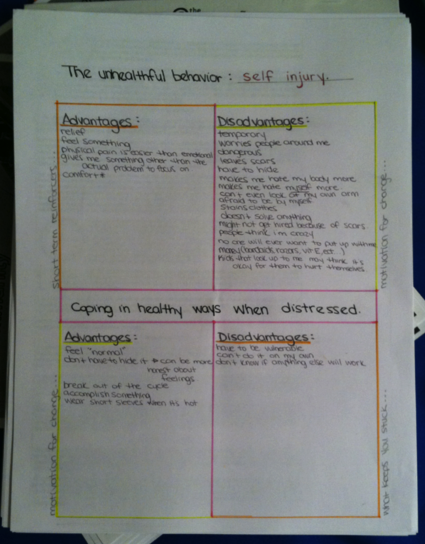 the
The unhealthful behavior : self injury.
Advantages:
relief
feel something
physical pain is easier than emotional
gives me something other than the
actual problem to focus on
comfort*
Disadvantages:
temporary
worries people around me
dangerous
leaves scars
have to hide
makes me hate my body more
makes me hate myself more
can't even look at my own arm
afraid to be by myself
stains clothes
doesn't solve anything
might not get hired because of scars
people think i'm crazy
no one will ever want to put up with me
money (bandaids, razors, vit E, ect.)
kids that look up to me may think it's
okay for them to hurt themselves
short term reinforcers...
motivation for change...
Coping in healthy ways when distressed.
Advantages:
feel "normal"
don't have to hide it * can be more
honest about
feelings
break out of the cycle
accomplish something
wear short sleeves when it's hot
Disadvantages:
have to be vulnerable
can't do it on my own
don't know if anything else will work
motivation for change...
what keeps you stuck...